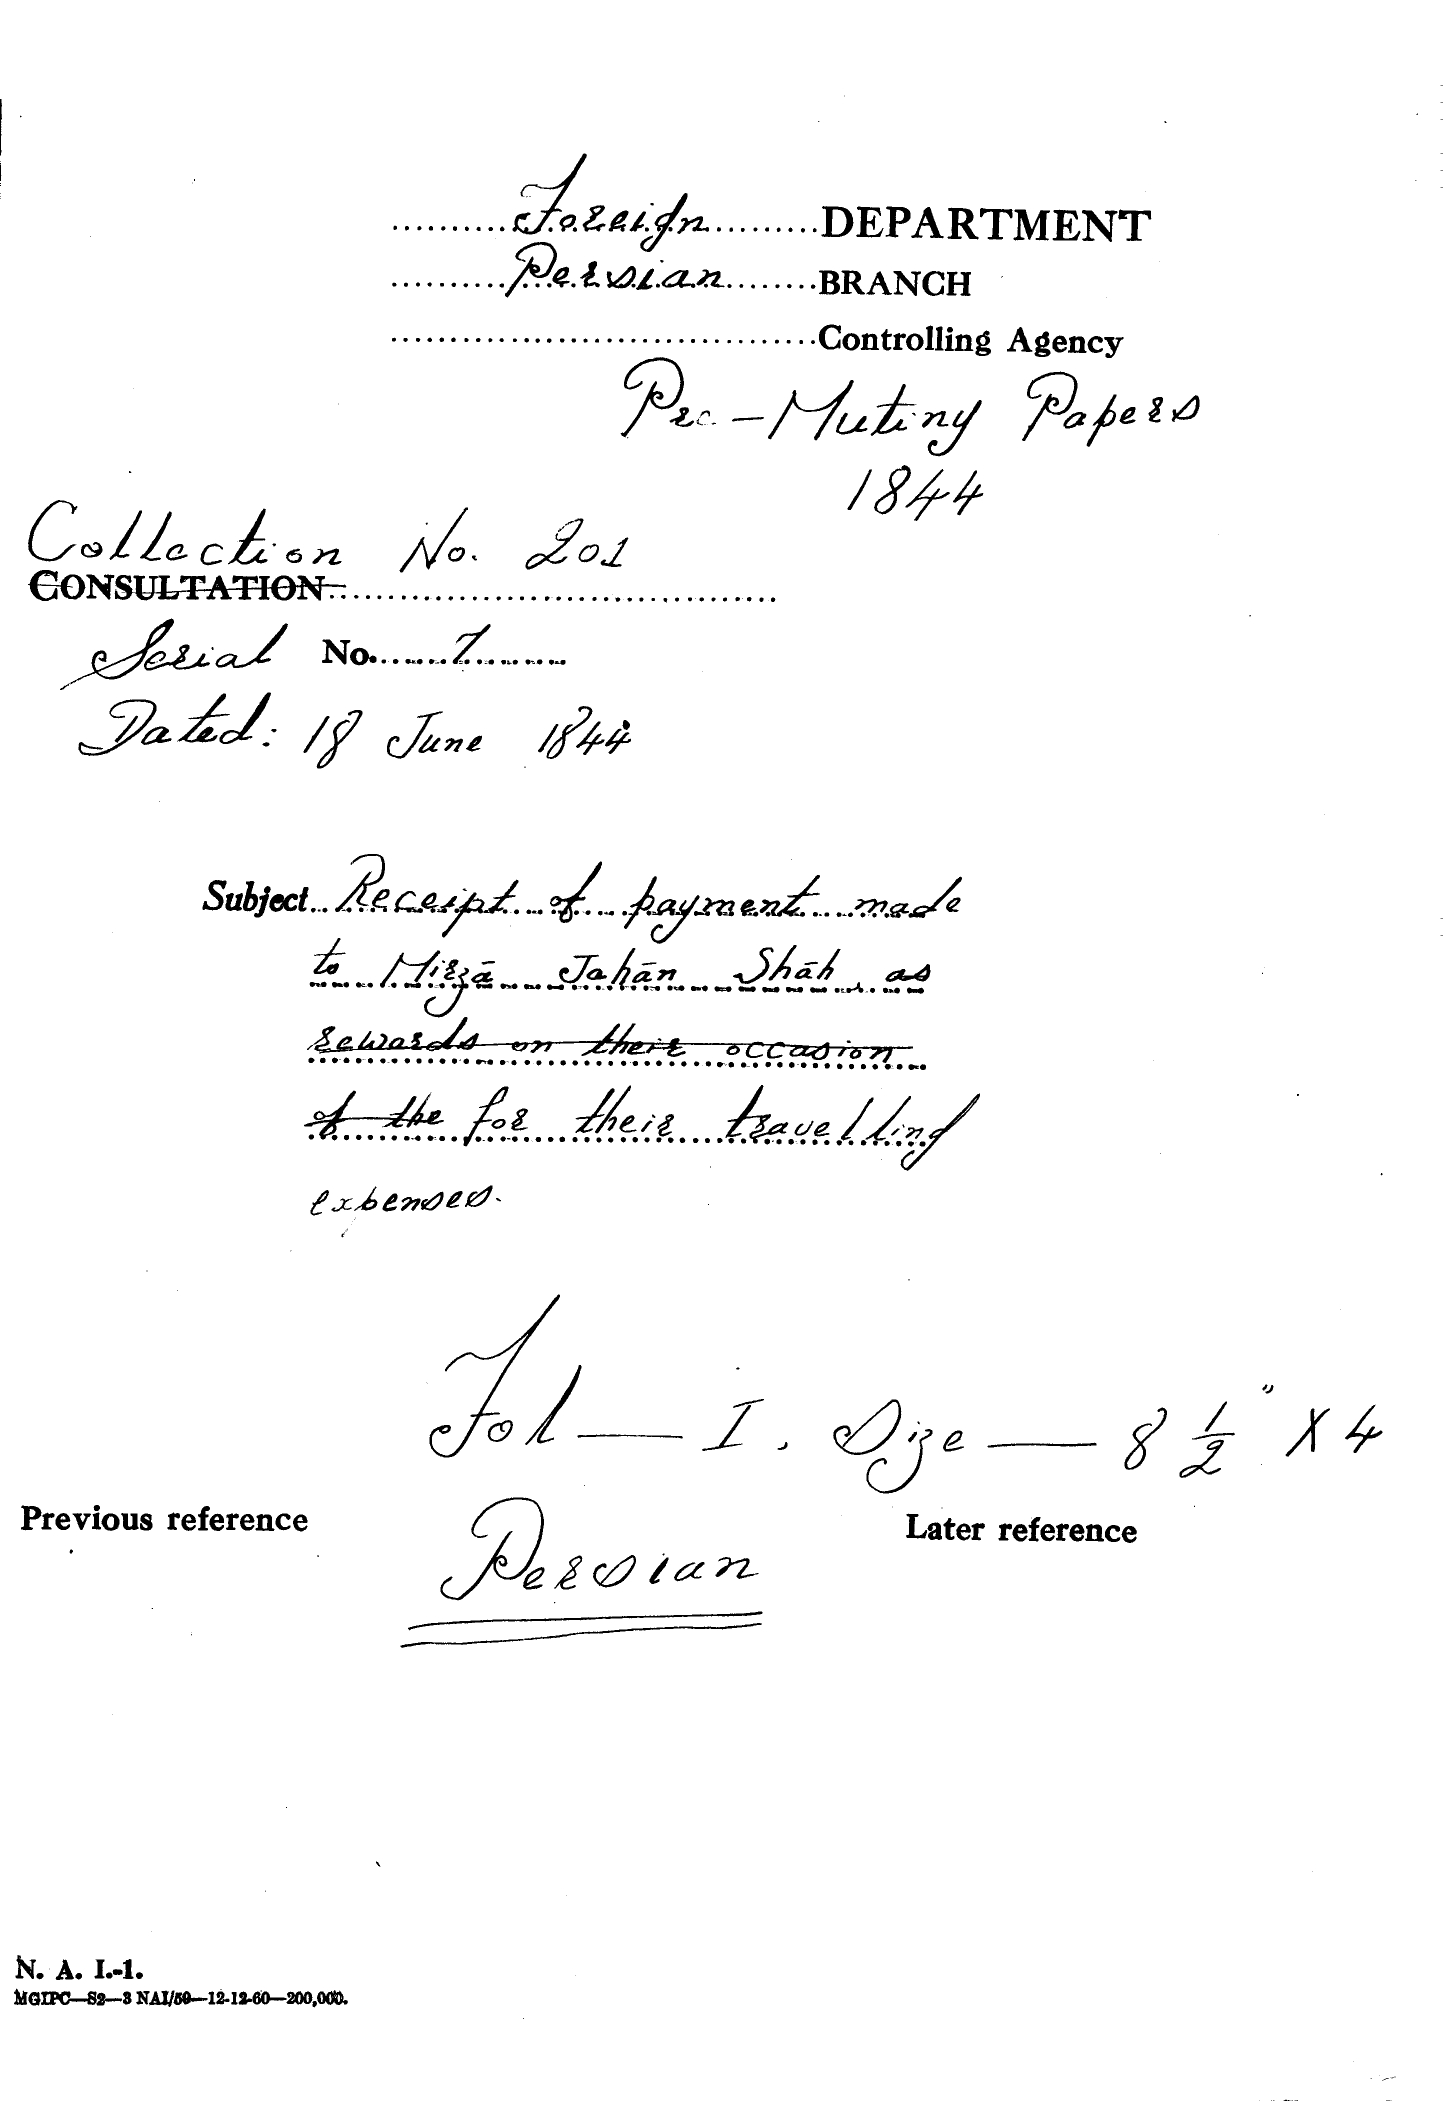 ..........Foreign..........DEPARTMENT
..........Persian........BRANCH
....................................Controlling Agency
Pre-Mutiny Papers
1844
Collection No. 201
CONSULTATION.......................................
Serial No.......7.........
Dated: 18 June 1844
Subject.. Receipt of payment made
to Mirzā Jahān Shāh, as
rewards on their occasion
of the for their travelling
expenses.
Fol — I. Size — 8 1/2" X 4
Previous reference
Later reference
Persian
N. A. I.-1.
MGIPC—S2—3 NAI/59—12-12-60—200,000.